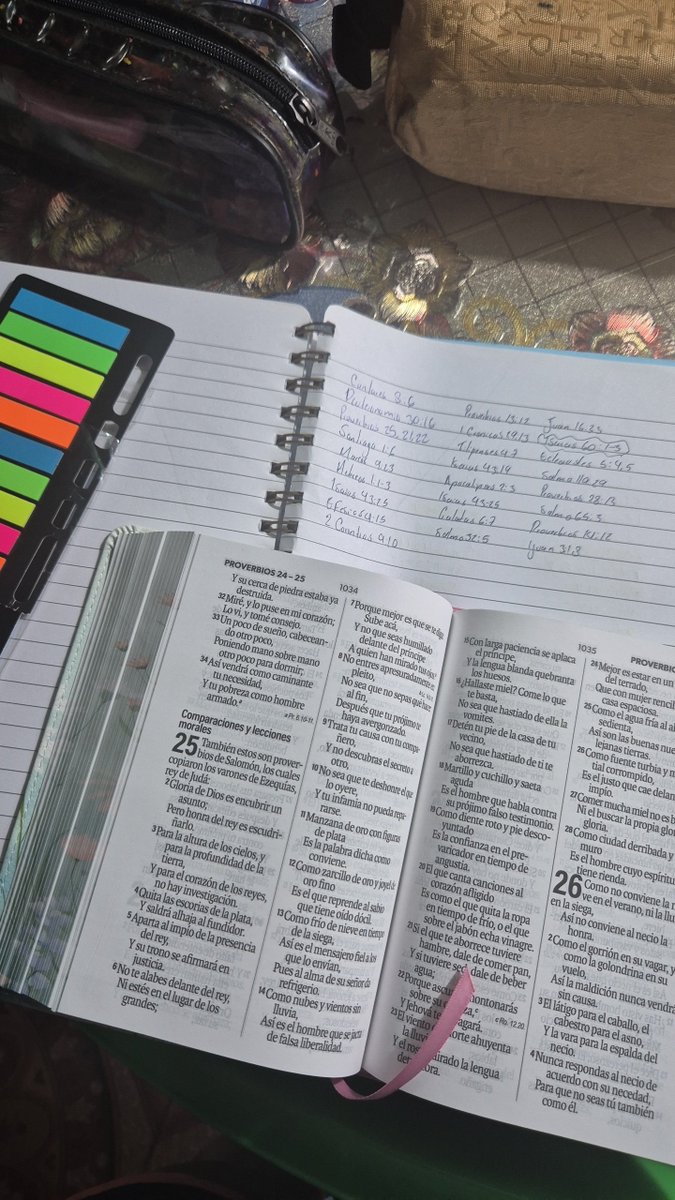 Cantares 8:6
Deuteronomio 30:16
Proverbios 25:21.22
Santiago 1:6
9:13
Hebreos 1:1-3
Isaias 43:25
Efesios 4:15
2 Corintios 9:10
Proverbios 13:12
1 Cronicas 29:13
Filipenses 4:7
Isaias 43:19
Apocalipsis 2:3
Isaias 43:25
Galatas 6:7
Salmo 32:5
Juan 16:23
Isaias 60
5:4,5
Salmo 119:29
Proverbios 28:13
Salmo 65:3
Proverbios 14:12
Juan
PROVERBIOS 24 – 25
1034
Y su cerca de piedra estaba ya
destruida.
32 Miré, y lo puse en mi corazón;
Lo vi, y tomé consejo.
33 Un poco de sueño, cabecean-
do otro poco,
Poniendo mano sobre mano
otro poco para dormir;
34 Así vendrá como caminante
tu necesidad,
Y tu pobreza como hombre
armado.a
a Pr. 6.10-11
Comparaciones y lecciones
morales
25 También estos son prover-
bios de Salomón, los cuales
copiaron los varones de Ezequías,
rey de Judá:
2 Gloria de Dios es encubrir un
asunto;
Pero honra del rey es escudri-
ñarlo.
3 Para la altura de los cielos, y
para la profundidad de la
tierra,
Y para el corazón de los reyes,
no hay investigación.
4 Quita las escorias de la plata,
Y saldrá alhaja al fundidor.
5 Aparta al impío de la presencia
del rey,
Y su trono se afirmará en
justicia.
6 No te alabes delante del rey,
Ni estés en el lugar de los
grandes;
7 Porque mejor es que se te diga:
Sube acá,
Y no que seas humillado
delante del príncipe
A quien han mirado tus ojos.
8 No entres apresuradamente en
pleito,
No sea que no sepas qué hacer
al fin,
Después que tu prójimo te
haya avergonzado.
9 Trata tu causa con tu compa-
ñero,
Y no descubras el secreto a
otro,
10 No sea que te deshonre el que
lo oyere,
Y tu infamia no pueda repa-
rarse.
11 Manzana de oro con figuras
de plata
Es la palabra dicha como
conviene.
12 Como zarcillo de oro y joyel de
oro fino
Es el que reprende al sabio
que tiene oído dócil.
13 Como frío de nieve en tiempo
de la siega,
Así es el mensajero fiel a los
que lo envían,
Pues al alma de su señor da
refrigerio.
14 Como nubes y vientos sin
lluvia,
Así es el hombre que se jacta
de falsa liberalidad.
1035
PROVERBIO
15 Con larga paciencia se aplaca
el príncipe,
Y la lengua blanda quebranta
los huesos.
16 ¿Hallaste miel? Come lo que
te basta,
No sea que hastiado de ella la
vomites.
17 Detén tu pie de la casa de tu
vecino,
No sea que hastiado de ti te
aborrezca.
18 Martillo y cuchillo y saeta
aguda
Es el hombre que habla contra
su prójimo falso testimonio.
19 Como diente roto y pie desco-
yuntado
Es la confianza en el pre-
varicador en tiempo de
angustia.
20 El que canta canciones al
corazón afligido
Es como el que quita la ropa
en tiempo de frío, o el que
sobre el jabón echa vinagre.
21 Si el que te aborrece tuviere
hambre, dale de comer pan,
Y si tuviere sed, dale de beber
agua;
22 Porque ascuas amontonarás
sobre su
c Ro. 12.20
Y Jehová te pagará.
23 El viento del norte ahuyenta
la lluvia
Y el rostro airado la lengua
24 Mejor es estar en un
del terrado,
Que con mujer rencil
casa espaciosa.
25 Como el agua fría al al
sedienta,
Así son las buenas nue
lejanas tierras.
26 Como fuente turbia y m
tial corrompido,
Es el justo que cae delan
impío.
27 Comer mucha miel no es b
Ni el buscar la propia glo
gloria.
28 Como ciudad derribada y
muro
Es el hombre cuyo espíritu
tiene rienda.
26 Como no conviene la n
ve en el verano, ni la llu
en la siega,
Así no conviene al necio la
honra.
2 Como el gorrión en su vagar, y
como la golondrina en su
vuelo,
Así la maldición nunca vendrá
sin causa.
3 El látigo para el caballo, el
cabestro para el asno,
Y la vara para la espalda del
necio.
4 Nunca respondas al necio de
acuerdo con su necedad,
Para que no seas tú también
como él.